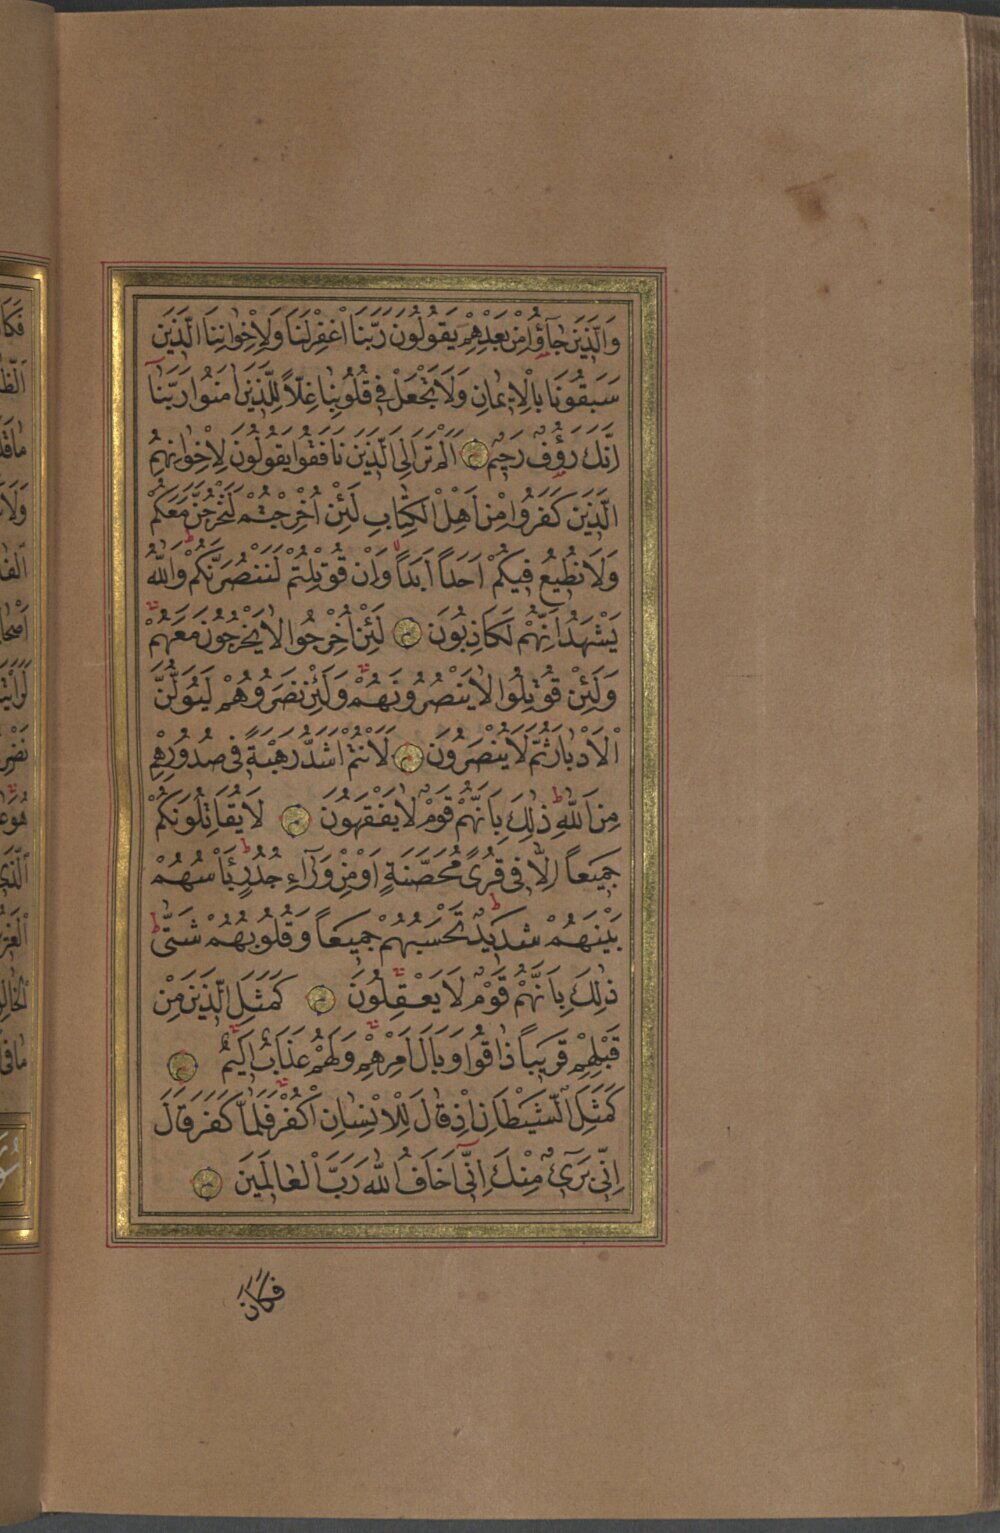 وَالَّذِينَ جَآؤُ مِنْ بَعْدِهِمْ يَقُولُونَ رَبَّنَا اغْفِرْ لَنَا وَلِاِخْوَانِنَا الَّذِينَ
سَبَقُونَا بِالْاِيمَانِ وَلَا تَجْعَلْ فِي قُلُوبِنَا غِلّاً لِلَّذِينَ اٰمَنُوا رَبَّنَآ
اِنَّكَ رَؤُفٌ رَحِيمٌ اَلَمْ تَرَ اِلَى الَّذِينَ نَافَقُوا يَقُولُونَ لِاِخْوَانِهِمُ
الَّذِينَ كَفَرُوا مِنْ اَهْلِ الْكِتَابِ لَئِنْ اُخْرِجْتُمْ لَنَخْرُجَنَّ مَعَكُمْ
وَلَا نُطِيعُ فِيكُمْ اَحَداً اَبَداً وَاِنْ قُوتِلْتُمْ لَنَنْصُرَنَّكُمْ وَاللّٰهُ
يَشْهَدُ اِنَّهُمْ لَكَاذِبُونَ لَئِنْ اُخْرِجُوا لَا يَخْرُجُونَ مَعَهُمْ
وَلَئِنْ قُوتِلُوا لَا يَنْصُرُونَهُمْ وَلَئِنْ نَصَرُوهُمْ لَيُوَلُّنَّ
الْاَدْبَارَ ثُمَّ لَا يُنْصَرُونَ لَاَنْتُمْ اَشَدُّ رَهْبَةً فِي صُدُورِهِمْ
مِنَ اللّٰهِ ذٰلِكَ بِاَنَّهُمْ قَوْمٌ لَا يَفْقَهُونَ لَا يُقَاتِلُونَكُمْ
جَمِيعاً اِلَّا فِي قُرًى مُحَصَّنَةٍ اَوْ مِنْ وَرَآءِ جُدُرٍ بَأْسُهُمْ
بَيْنَهُمْ شَدِيدٌ تَحْسَبُهُمْ جَمِيعاً وَقُلُوبُهُمْ شَتّٰى
ذٰلِكَ بِاَنَّهُمْ قَوْمٌ لَا يَعْقِلُونَ كَمَثَلِ الَّذِينَ مِنْ
قَبْلِهِمْ قَرِيباً ذَاقُوا وَبَالَ اَمْرِهِمْ وَلَهُمْ عَذَابٌ اَلِيمٌ
كَمَثَلِ الشَّيْطَانِ اِذْ قَالَ لِلْاِنْسَانِ اكْفُرْ فَلَمَّا كَفَرَ قَالَ
اِنِّي بَرِٓيءٌ مِنْكَ اِنِّٓي اَخَافُ اللّٰهَ رَبَّ الْعَالَمِينَ
فَكَانَ